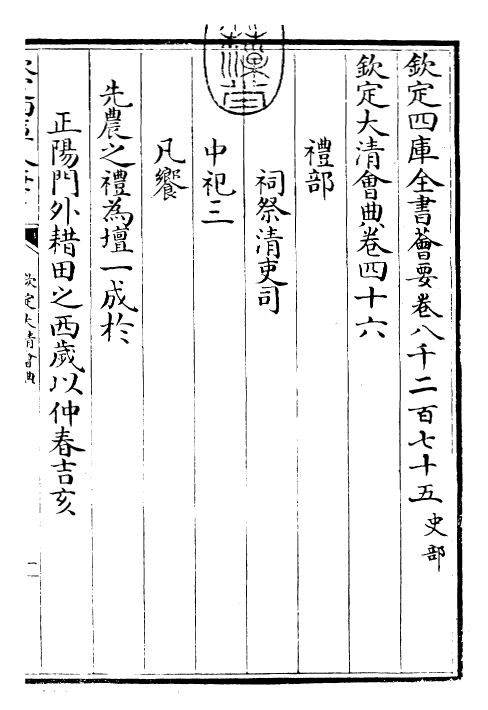 欽定四庫全書薈要卷八千二百七十五 史部
欽定大清會典卷四十六
禮部
祠祭清吏司
中祀三
凡饗
先農之禮為壇一成於
正陽門外耤田之西歲以仲春吉亥
欽定大清會典
一